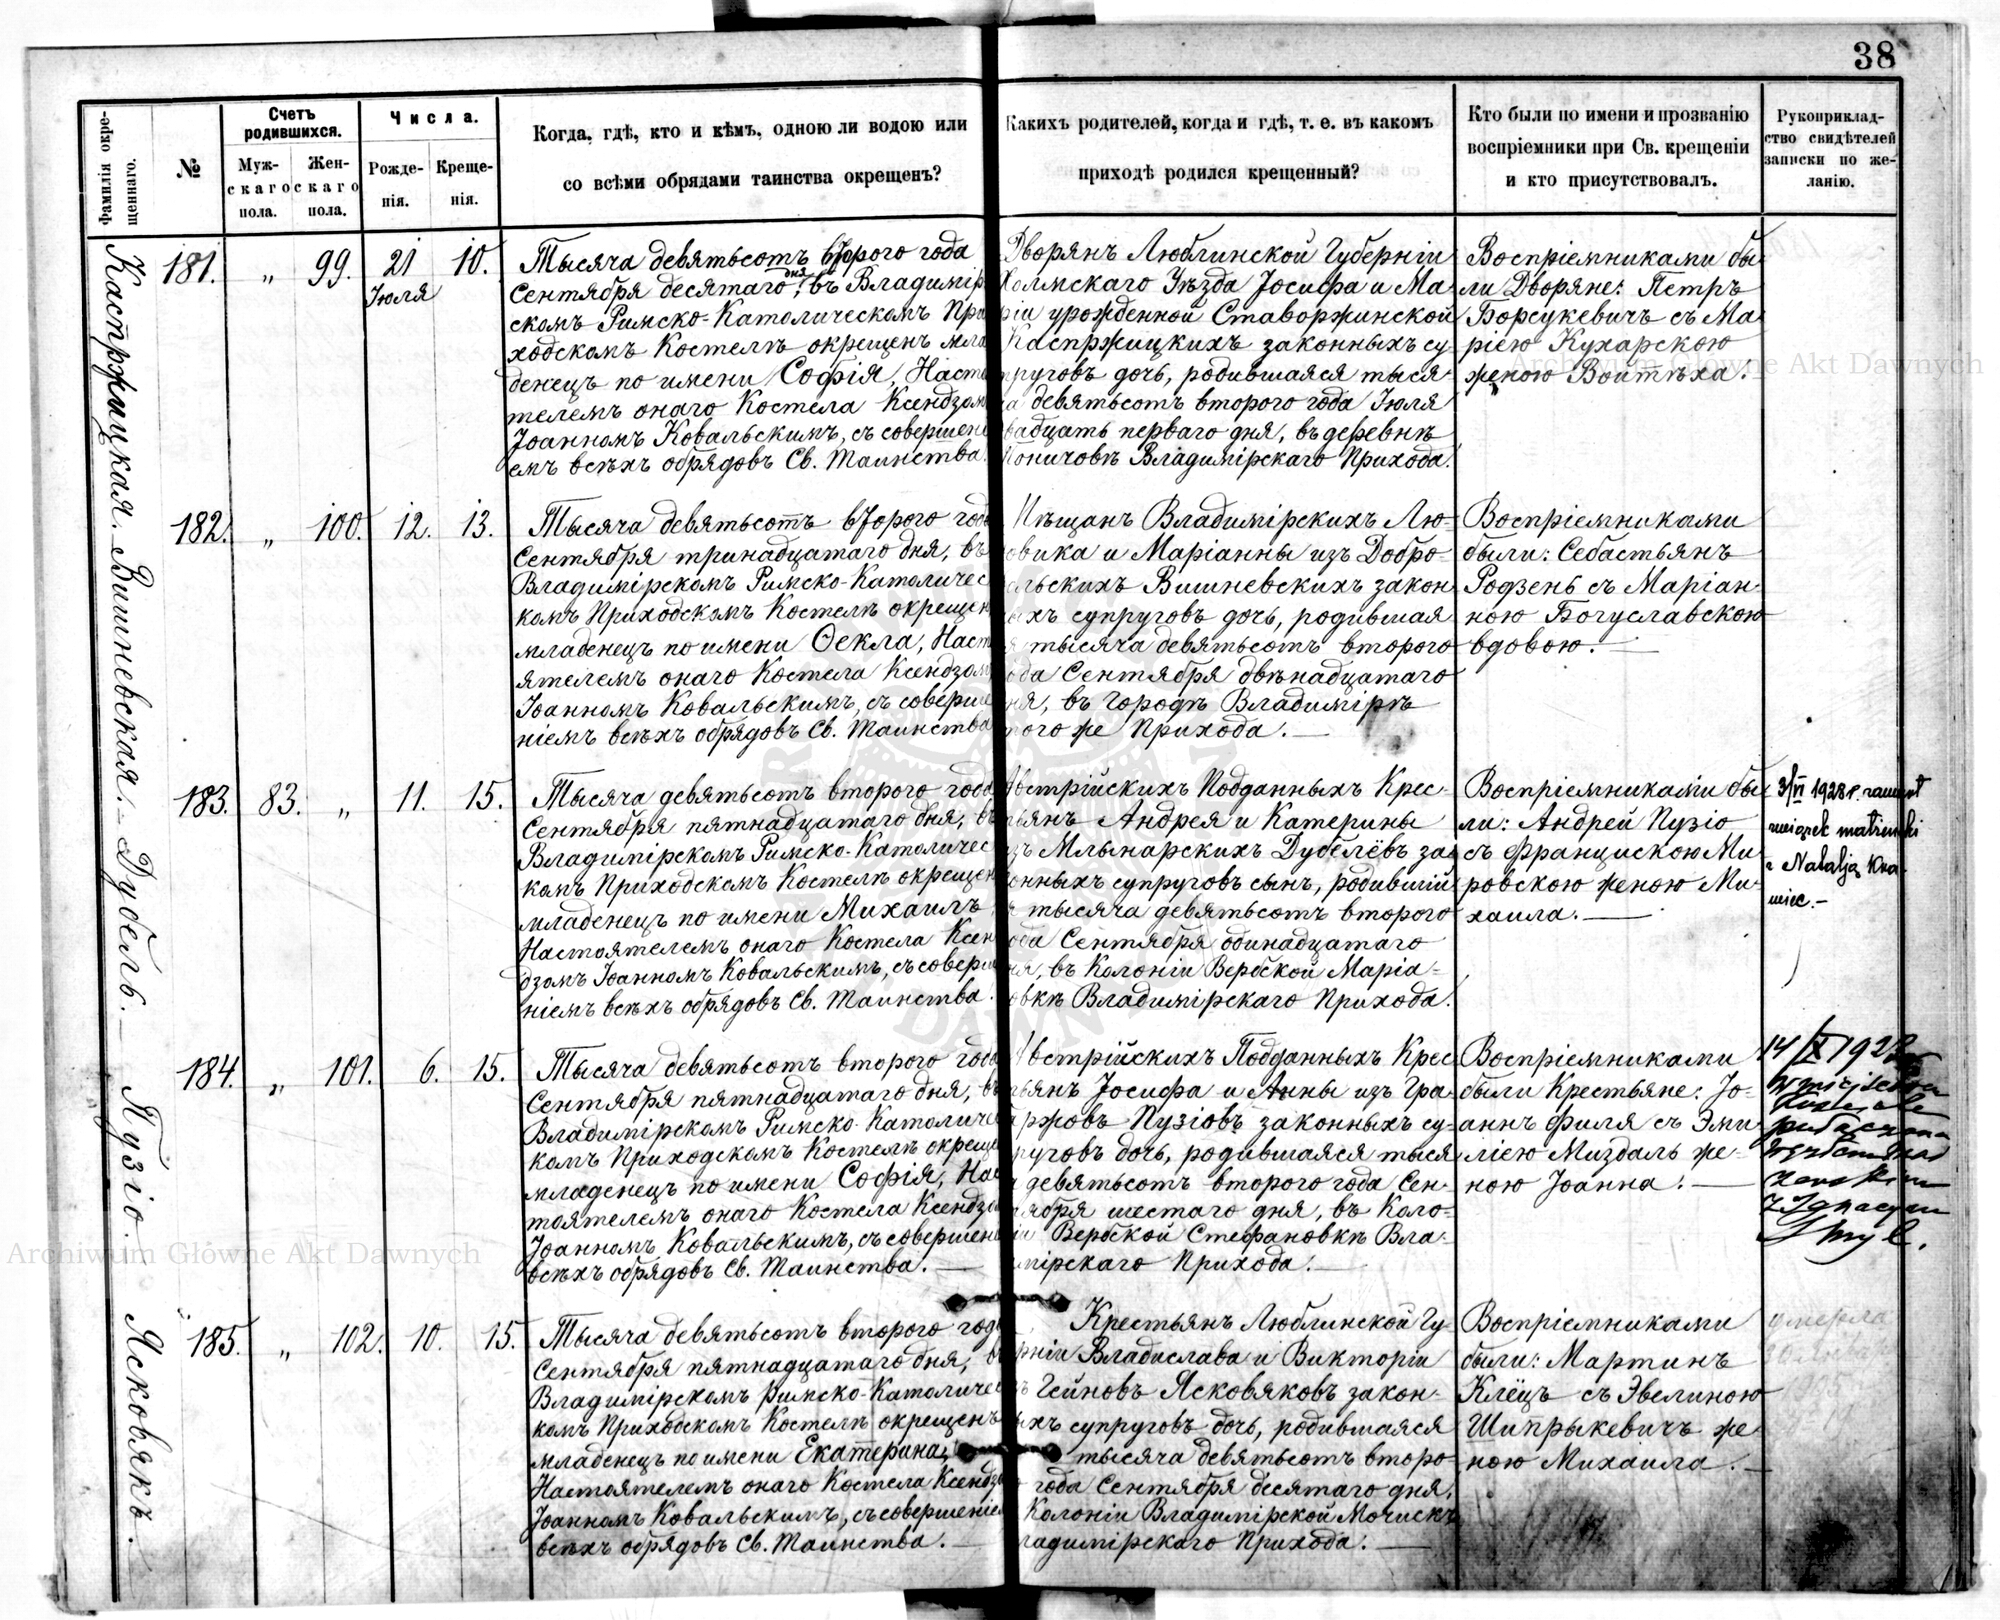 38
Фамилія окре-
щеннаго.
№
Счетъ
родившихся.
Муж-
скаго
пола.
Жен-
скаго
пола.
Числа.
Рожде-
нія.
Креще-
нія.
Когда, гдѣ, кто и кѣмъ, одною ли водою или
со всѣми обрядами таинства окрещенъ?
Какихъ родителей, когда и гдѣ, т. е. въ какомъ
приходѣ родился крещенный?
Кто были по имени и прозванію
воспріемники при Св. крещеніи
и кто присутствовалъ.
Рукоприклад-
ство свидѣтелей
записки по же-
ланію.
Каспржицкая.
181. „ 99. 21 10.
Іюля
Тысяча девятьсотъ второго года
Сентября десятаго дня, въ Владимір
скомъ Римско-Католическомъ При
ходскомъ Костелѣ окрещенъ мла
денецъ по имени Софія, Насто
телемъ онаго Костела Ксендзомъ
Іоанномъ Ковальскимъ, съ совершені
емъ всѣхъ обрядовъ Св. Таинства.
Дворянъ Люблинской Губерніи
Холмскаго Уѣзда Іосифа и Ма
ріи урожденной Ставоржинской
Каспржицкихъ законныхъ су
пруговъ дочь, родившаяся тыся
ча девятьсотъ второго года Іюля
двадцать перваго дня, въ деревнѣ
Поничовѣ Владимірскаго Прихода.
Воспріемниками бы
ли Дворяне: Петръ
Борсукевичъ съ Ма
ріею Кухарскою
женою Войтѣха.
Вишневская.
182. „ 100. 12. 13.
Тысяча девятьсотъ второго года
Сентября тринадцатаго дня, въ
Владимірскомъ Римско-Католичес
комъ Приходскомъ Костелѣ окрещен
младенецъ по имени Ѳекла, Наст
ятелемъ онаго Костела Ксендзом
Іоанномъ Ковальскимъ, съ соверше
ніемъ всѣхъ обрядовъ Св. Таинства
Мѣщанъ Владимірскихъ Лю-
овика и Маріанны изъ Добро-
ольскихъ Вишневскихъ закон
ыхъ супруговъ дочь, родившая
я тысяча девятьсотъ второго
ода Сентября двѣнадцатаго
ня, въ городѣ Владимірѣ
того же Прихода.
Воспріемниками
были: Себастьянъ
Родзень съ Маріан-
ною Богуславскою
вдовою.
Дубель.
183. 83. „ 11. 15.
Тысяча девятьсотъ второго года
Сентября пятнадцатаго дня, въ
Владимірскомъ Римско-Католичес
комъ Приходскомъ Костелѣ окрещен
младенецъ по имени Михаилъ
Настоятелемъ онаго Костела Ксен
дзомъ Іоанномъ Ковальскимъ, съ соверш
ніемъ всѣхъ обрядовъ Св. Таинства.
Австрійскихъ Подданныхъ Крес-
тьянъ Андрея и Катерины
изъ Млынарскихъ Дубелёвъ за
онныхъ супруговъ сынъ, родившій
я тысяча девятьсотъ второго
ода Сентября одинадцатаго
ня, въ Колоніи Вербской Маріа-
овкѣ Владимірскаго Прихода.
Воспріемниками бы
ли: Андрей Пузіо
съ Францискою Ми
ровскою женою Ми-
хаила.
3/VI 1928 r. zawarł
związek małżeński
z Natalją Kra
wiec.-
Пузіо.
184. „ 101. 6. 15.
Тысяча девятьсотъ второго года
Сентября пятнадцатаго дня, въ
Владимірскомъ Римско-Католичес
комъ Приходскомъ Костелѣ окреще
младенецъ по имени Софія, Нас
тоятелемъ онаго Костела Ксендзо
Іоанномъ Ковальскимъ, съ совершен
всѣхъ обрядовъ Св. Таинства.
Австрійскихъ Подданныхъ Крес
тьянъ Іосифа и Анны изъ Гра
аржовъ Пузіовъ законныхъ су-
руговъ дочь, родившаяся тыся
а девятьсотъ второго года Сен-
тября шестаго дня, въ Коло-
іи Вербской Стефановкѣ Вла-
мірскаго Прихода.
Воспріемниками
были Крестьяне: Іо-
аннъ Филя съ Эми
ліею Миздаль же-
ною Іоанна.
z Ignacym
Ясковякъ.
185. „ 102. 10. 15.
Тысяча девятьсотъ второго года
Сентября пятнадцатаго дня, въ
Владимірскомъ Римско-Католичес
комъ Приходскомъ Костелѣ окрещенъ
младенецъ по имени Екатерина,
Настоятелемъ онаго Костела Ксендзо
Іоанномъ Ковальскимъ, съ совершеніем
всѣхъ обрядовъ Св. Таинства.
Крестьянъ Люблинской Гу-
рніи Владислава и Викторіи
ъ Гейновъ Ясковяковъ закон-
ыхъ супруговъ дочь, родившаяся
тысяча девятьсотъ второ-
го года Сентября десятаго дня,
Колоніи Владимірской Мочискѣ
ладимірскаго Прихода.
Воспріемниками
были: Мартинъ
Клёцъ съ Эвелиною
Шипрыкевичъ же
ною Михаила.
умерла
Archiwum Główne Akt Dawnych
Archiwum Główne Akt Dawnych